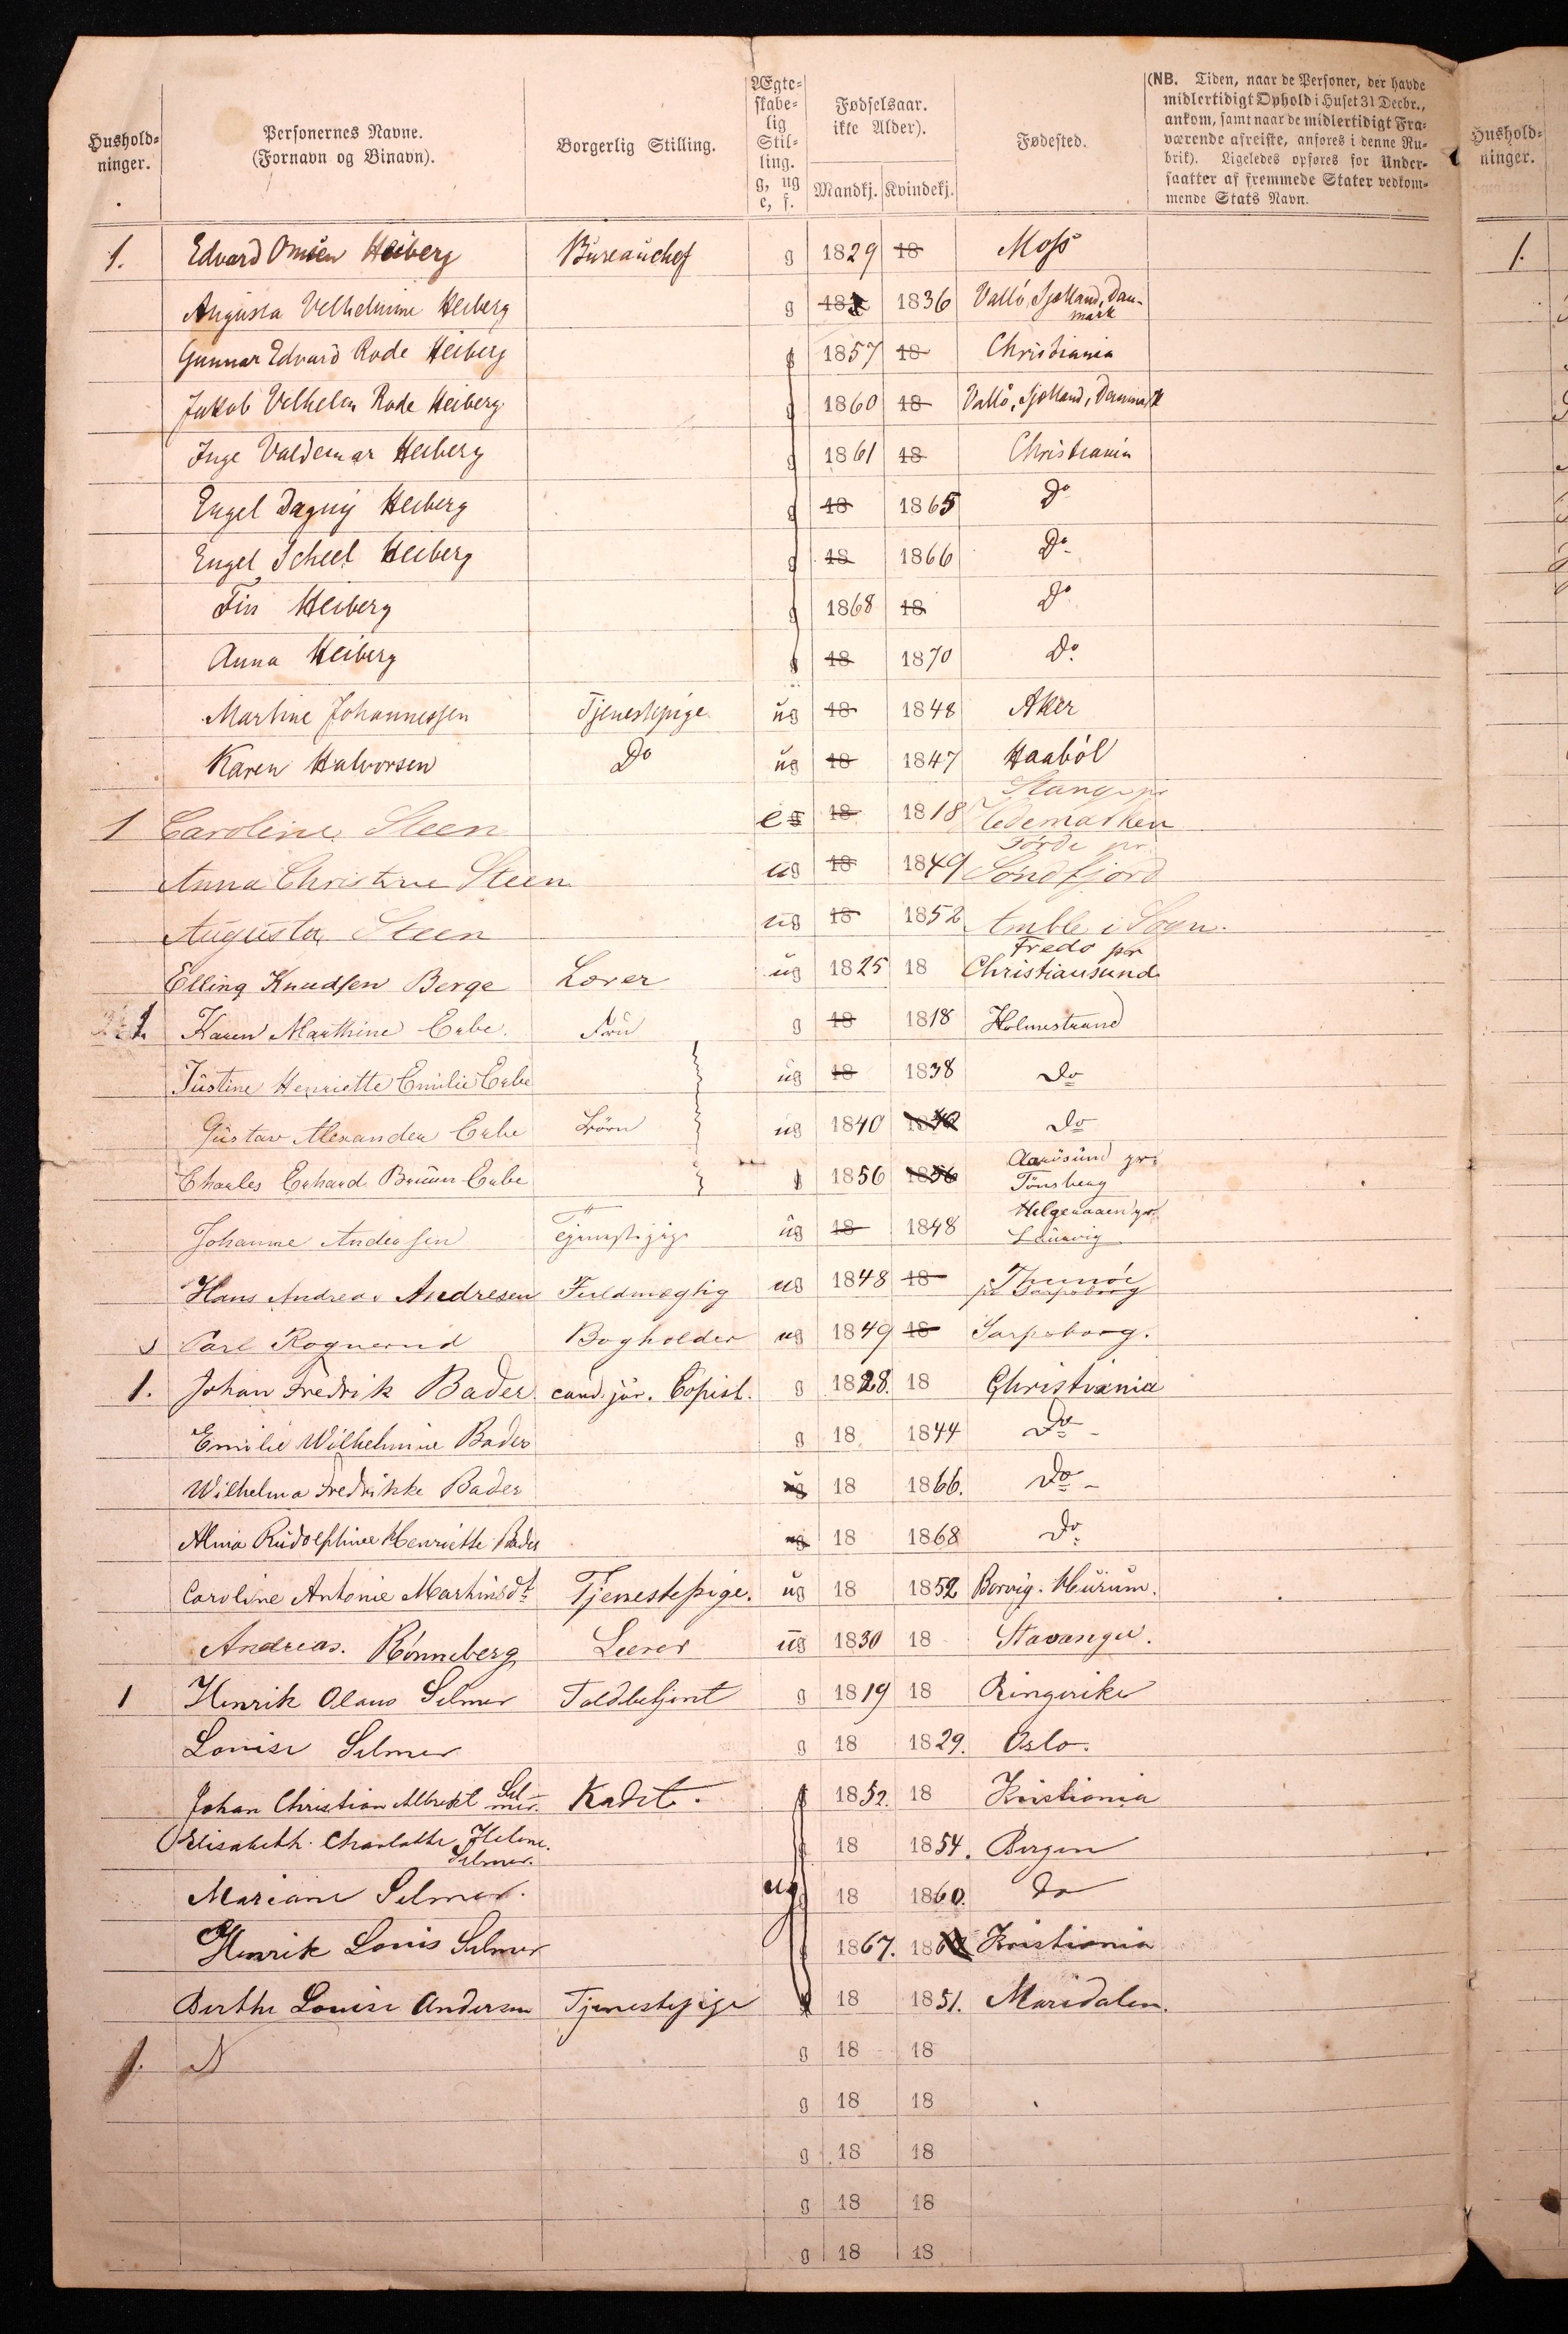 Hushold-
ninger.
Personernes Navne.
(Fornavn og Binavn).
Borgerlig Stilling.
Ægte-
skabe-
lig
Stil-
ling.
g, ug
e, f.
Fødselsaar.
ikke Alder).
Mandkj. Kvindekj.
Fødested.
(NB. Tiden, naar de Personer, der havde
midlertidigt Ophold i Huset 31 Decbr.,
ankom, samt naar de midlertidigt Fra-
værende afreiste, anføres i denne Ru-
brik). Ligeledes opføres for Under-
saatter af fremmede Stater vedkom-
mende Stats Navn.
Hushold-
ninger.
1. Edvard Omsen Heiberg Bureauchef g 1829 18 Moss 1.
Augusta Vilhelmine Heiberg g 18 1836 Vallö, Sjælland, Dan-
mark
Gunnar Edvard Rode Heiberg g 1857 18 Christiania
Jakob Vilhelm Rode Heiberg g 1860 18 Vallö, Sjælland, Danmark
Inge Valdemar Heiberg g 1861 18 Christiania
Engel Dagny Heiberg g 18 1865 Do
Engel Scheel Heiberg g 18 1866 Do
Fin Heiberg g 1868 18 Do
Anna Heiberg g 18 1870 Do.
Martine Johannessen Tjenestepige ug 18 1848 Aker
Karen Halvorsen Do ug 18 1847 Haaböl
Stange pr
1 Caroline Steen e g 18 1818 Hedemarken
Förde pr.
Anna Christine Steen ug 18 1849 Söndfjord
Augusta Steen ug 18 1852 Amble i Sogn.
Fredö pr
Elling Knudsen Berge Lærer ug 1825 18 Christiansund
1. Karen Marthine Erbe Fru g 18 1818 Holmestrand
Justine Henriette Emilie Erbe ug 18 1838 Do
Gustav Alexander Erbe Börn ug 1840 1840 Do
Aarösund pr.
Charles Erhard Bruun Erbe g 1856 1856 Tönsberg
Helgeraaen pr.
Johanne Andersen Tjenestepige ug 18 1848 Laurvig
Hans Andreas Andresen Fuldmægtig ug 1848 18 Thunöe
pr Sarpsborg
s Carl Rognerud Bogholder ug 1849 18 Sarpsborg.
1. Johan Fredrik Bader cand. jur. Copist. g 1828. 18 Christiania
Emilie Wilhelmine Bader g 18 1844 Do
Wilhelma Fredrikke Bader ug 18 1866. Do
Alma Rudolphine Henriette Bader ug 18 1868 Do
Caroline Antonie Martinsdt Tjenestepige. ug 18 1852 Borvig. Hurum.
Andreas. Rönneberg Lærer ug 1830 18 Stavanger.
1 Henrik Olaus Selmer Toldbetjent g 1819 18 Ringerike
Louise Selmer g 18 1829. Oslo.
Johan Christian Albrekt Sel-
mer. Kadet. g 1852. 18 Kristiania
Elisabeth. Charlotte Helene.
Selmer. g 18 1854. Bergen
Mariane Selmer. ug 18 1860. do
Henrik Louis Selmer g 1867. 186 Kristiania
Berthe Louise Andersen Tjenestepige g 18 1851. Maridalen.
1. g 18 18
g 18 18
g 18 18
g 18 18
g 18 18